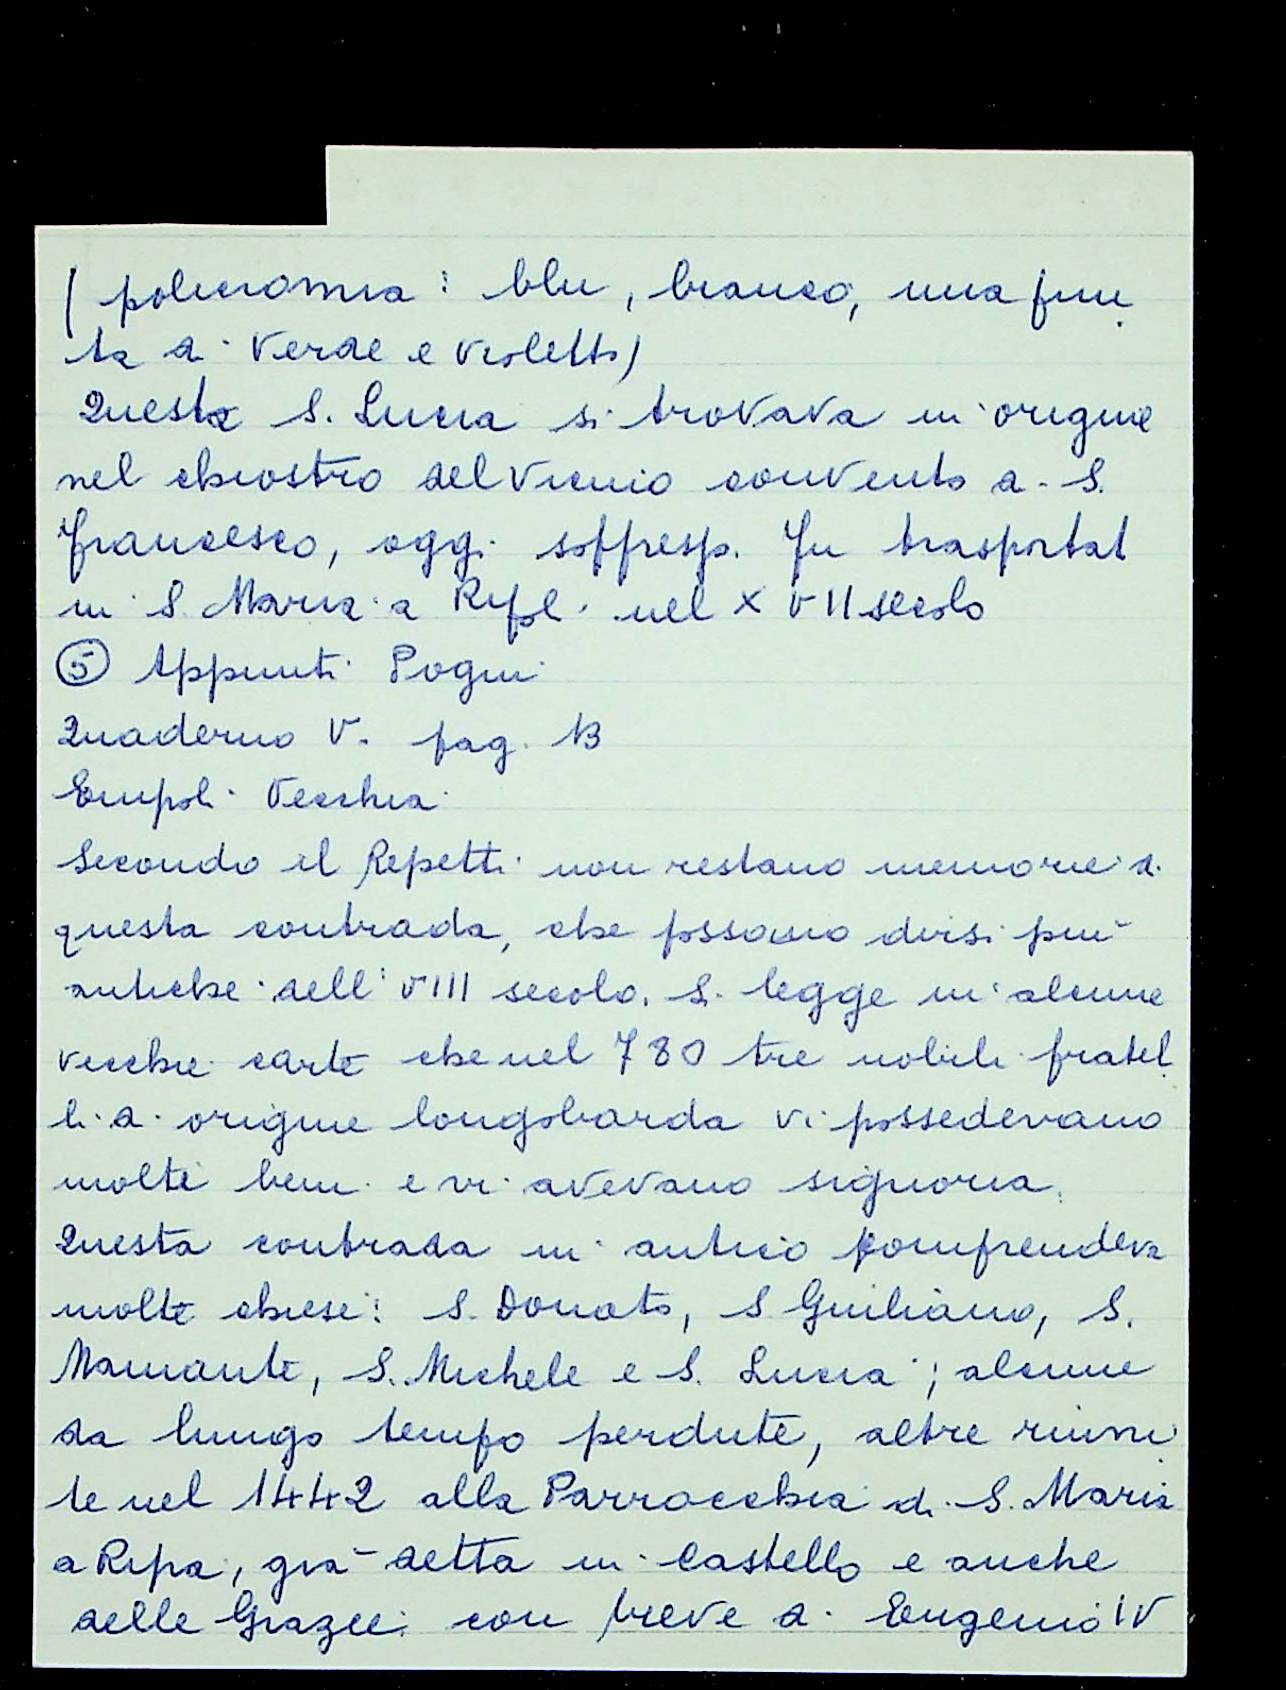 ( policromia: blu, bianco, una pun
ta di verde e violetto)
Questa S. Lucia si trovava in origine
nel chiostro del vicino convento di S.
Francesco, oggi soppresso. Fu trasportat
in S. Maria a Ripa nel XVII secolo
⑤ Appunti Pogni
Quaderno V. pag. 13
Empoli Vecchia
Secondo il Repetti non restano memorie di
questa contrada, che possano dirsi più
antiche dell'VIII secolo. Si legge in alcune
vecchie carte che nel 780 tre nobili fratel
li di origine longobarda vi possedevano
molti beni e vi avevano signoria.
Questa contrada in antico comprendeva
molte chiese: S. Donato, S. Giuliano, S.
Mamante, S. Michele e S. Lucia; alcune
da lungo tempo perdute, altre riuni
te nel 1442 alla Parrocchia di S. Maria
a Ripa, già detta in Castello e anche
delle Grazie con breve di Eugenio IV